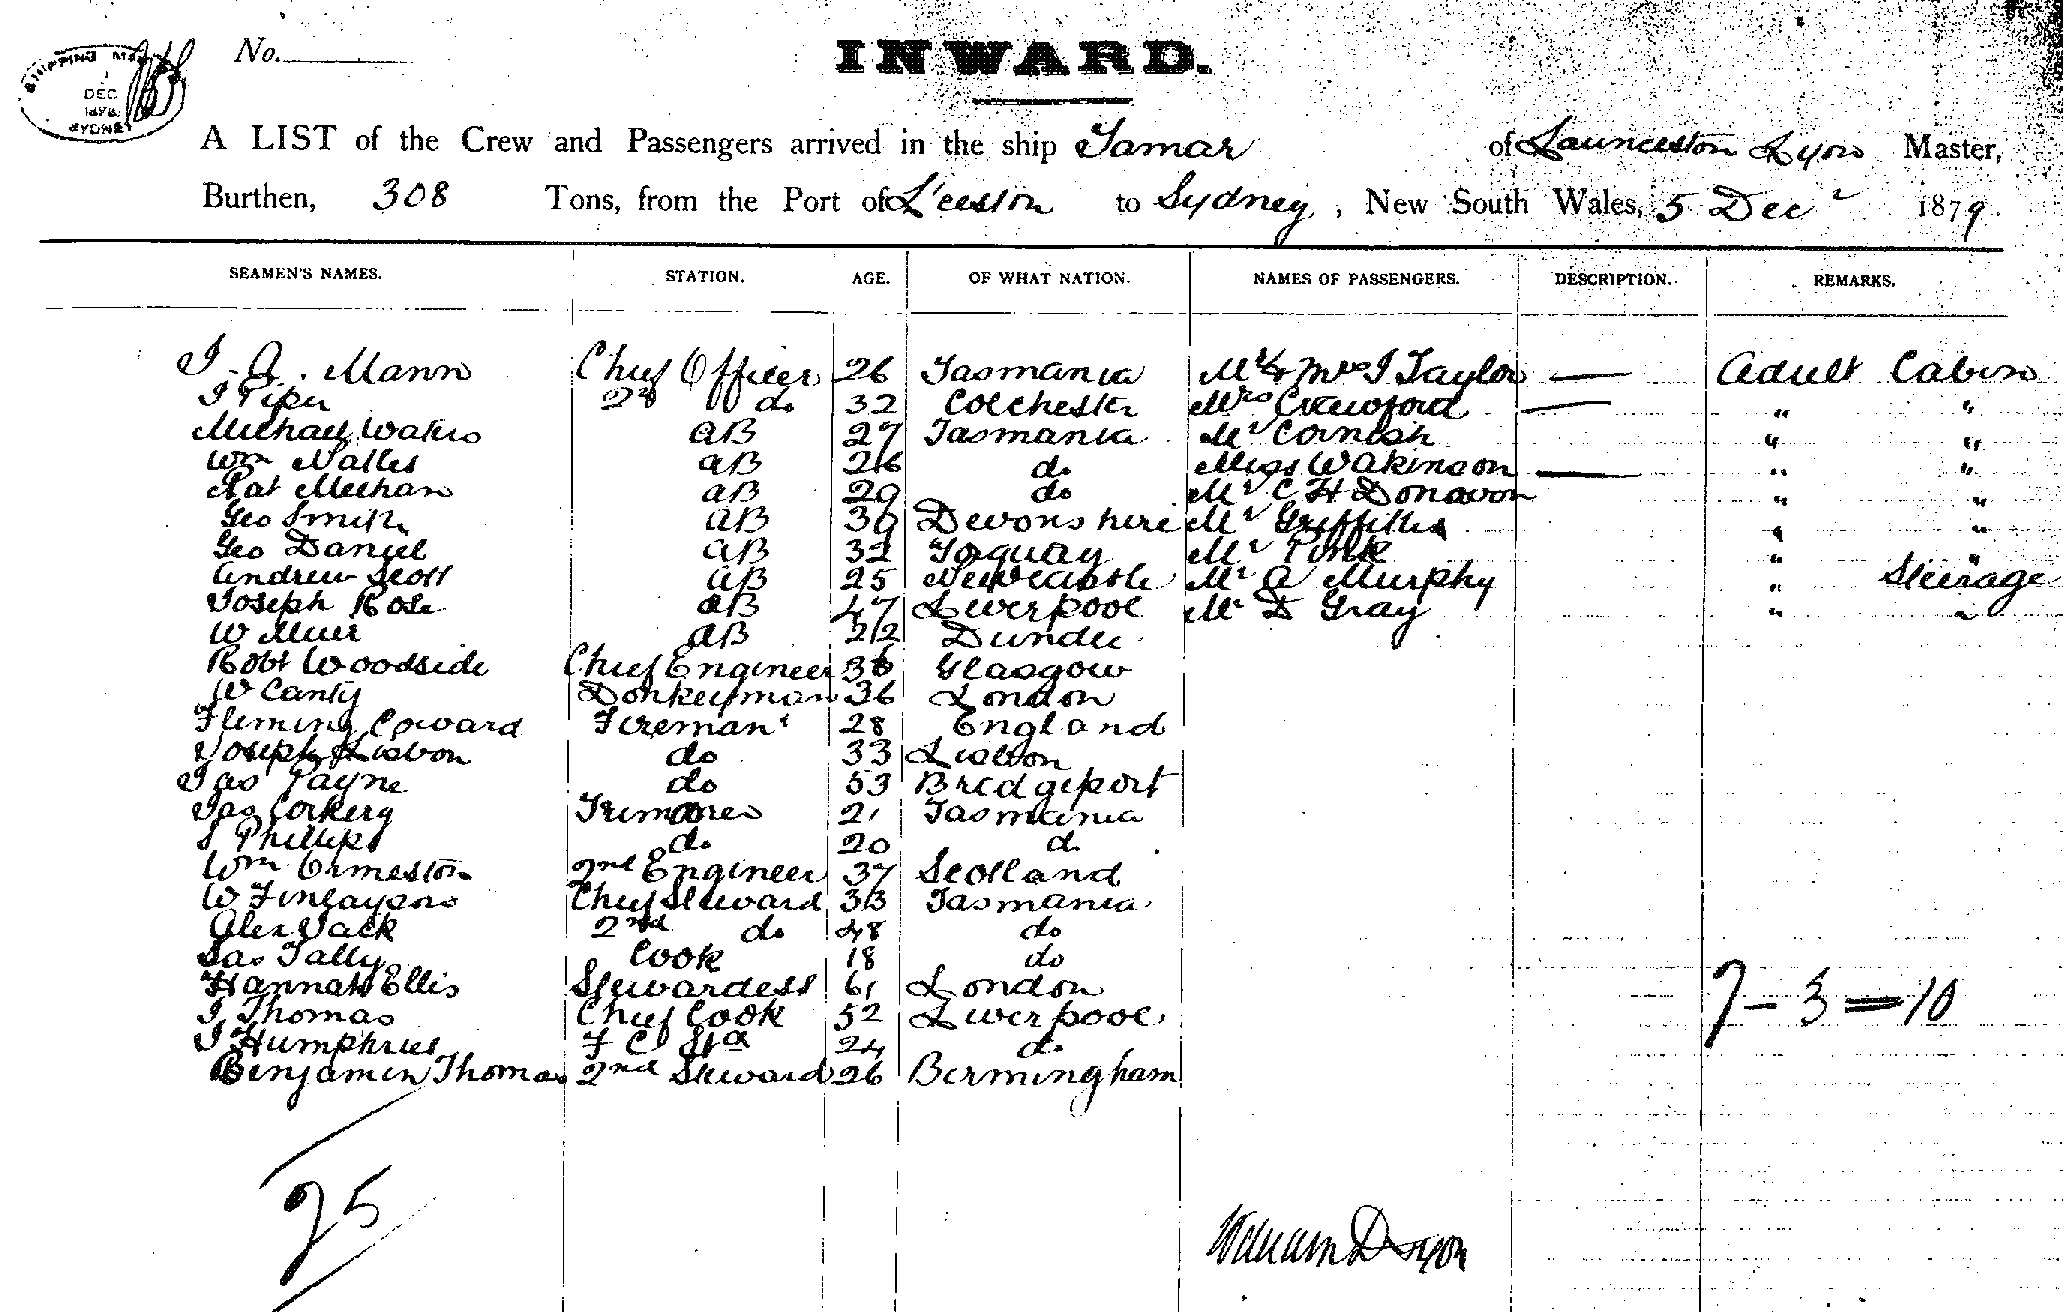 SHIPPING MASTER
DEC
1879
SYDNEY
No.
INWARD.
A LIST of the Crew and Passengers arrived in the ship Tamar of Launceston Lyon Master,
Burthen, 308 Tons, from the Port of L'ceston to Sydney, New South Wales, 5 Decr 1879.
SEAMEN'S NAMES. STATION. AGE. OF WHAT NATION. NAMES OF PASSENGERS. DESCRIPTION. REMARKS.
J. A. Mann Chief Officer 26 Tasmania Mr & Mrs J Taylor — Adult Cabin
J Piper 2d do 32 Colchester Mrs Crawford — " "
Michael Waters AB 27 Tasmania Mr Cornish " "
Wm Nalles AB 26 do Miss Wakinson — " "
Pat Meehan AB 29 do Mr C H Donavon " "
Geo Smith AB 39 Devonshire Mr Griffiths " "
Geo Daniel AB 32 Toquay Mr Pink " "
Andrew Scott AB 25 Newcastle Mr A Murphy " Steerage
Joseph Rose AB 47 Liverpool Mr D Gray " "
W Muir AB 22 Dundee
Robt Woodside Chief Engineer 36 Glasgow
W Canty Donkeyman 36 London
Fleming Coward Fireman 28 England
Joseph Lisbon do 33 Lisbon
Jas Payne do 53 Bridgeport
Jas Corkery Trimmer 21 Tasmania
J Phillips do 20 do
Wm Ormeston 2nd Engineer 37 Scotland
W Finlayson Chief Steward 33 Tasmania
Alex Jack 2nd do 48 do
Jas Tally Cook 18 do
Hannah Ellis Stewardess 61 London
J Thomas Chief Cook 52 Liverpool
J Humphries F C Std 24 do
Benjamin Thomas 2nd Steward 26 Birmingham
7 - 3 = 10
25
William Dixon